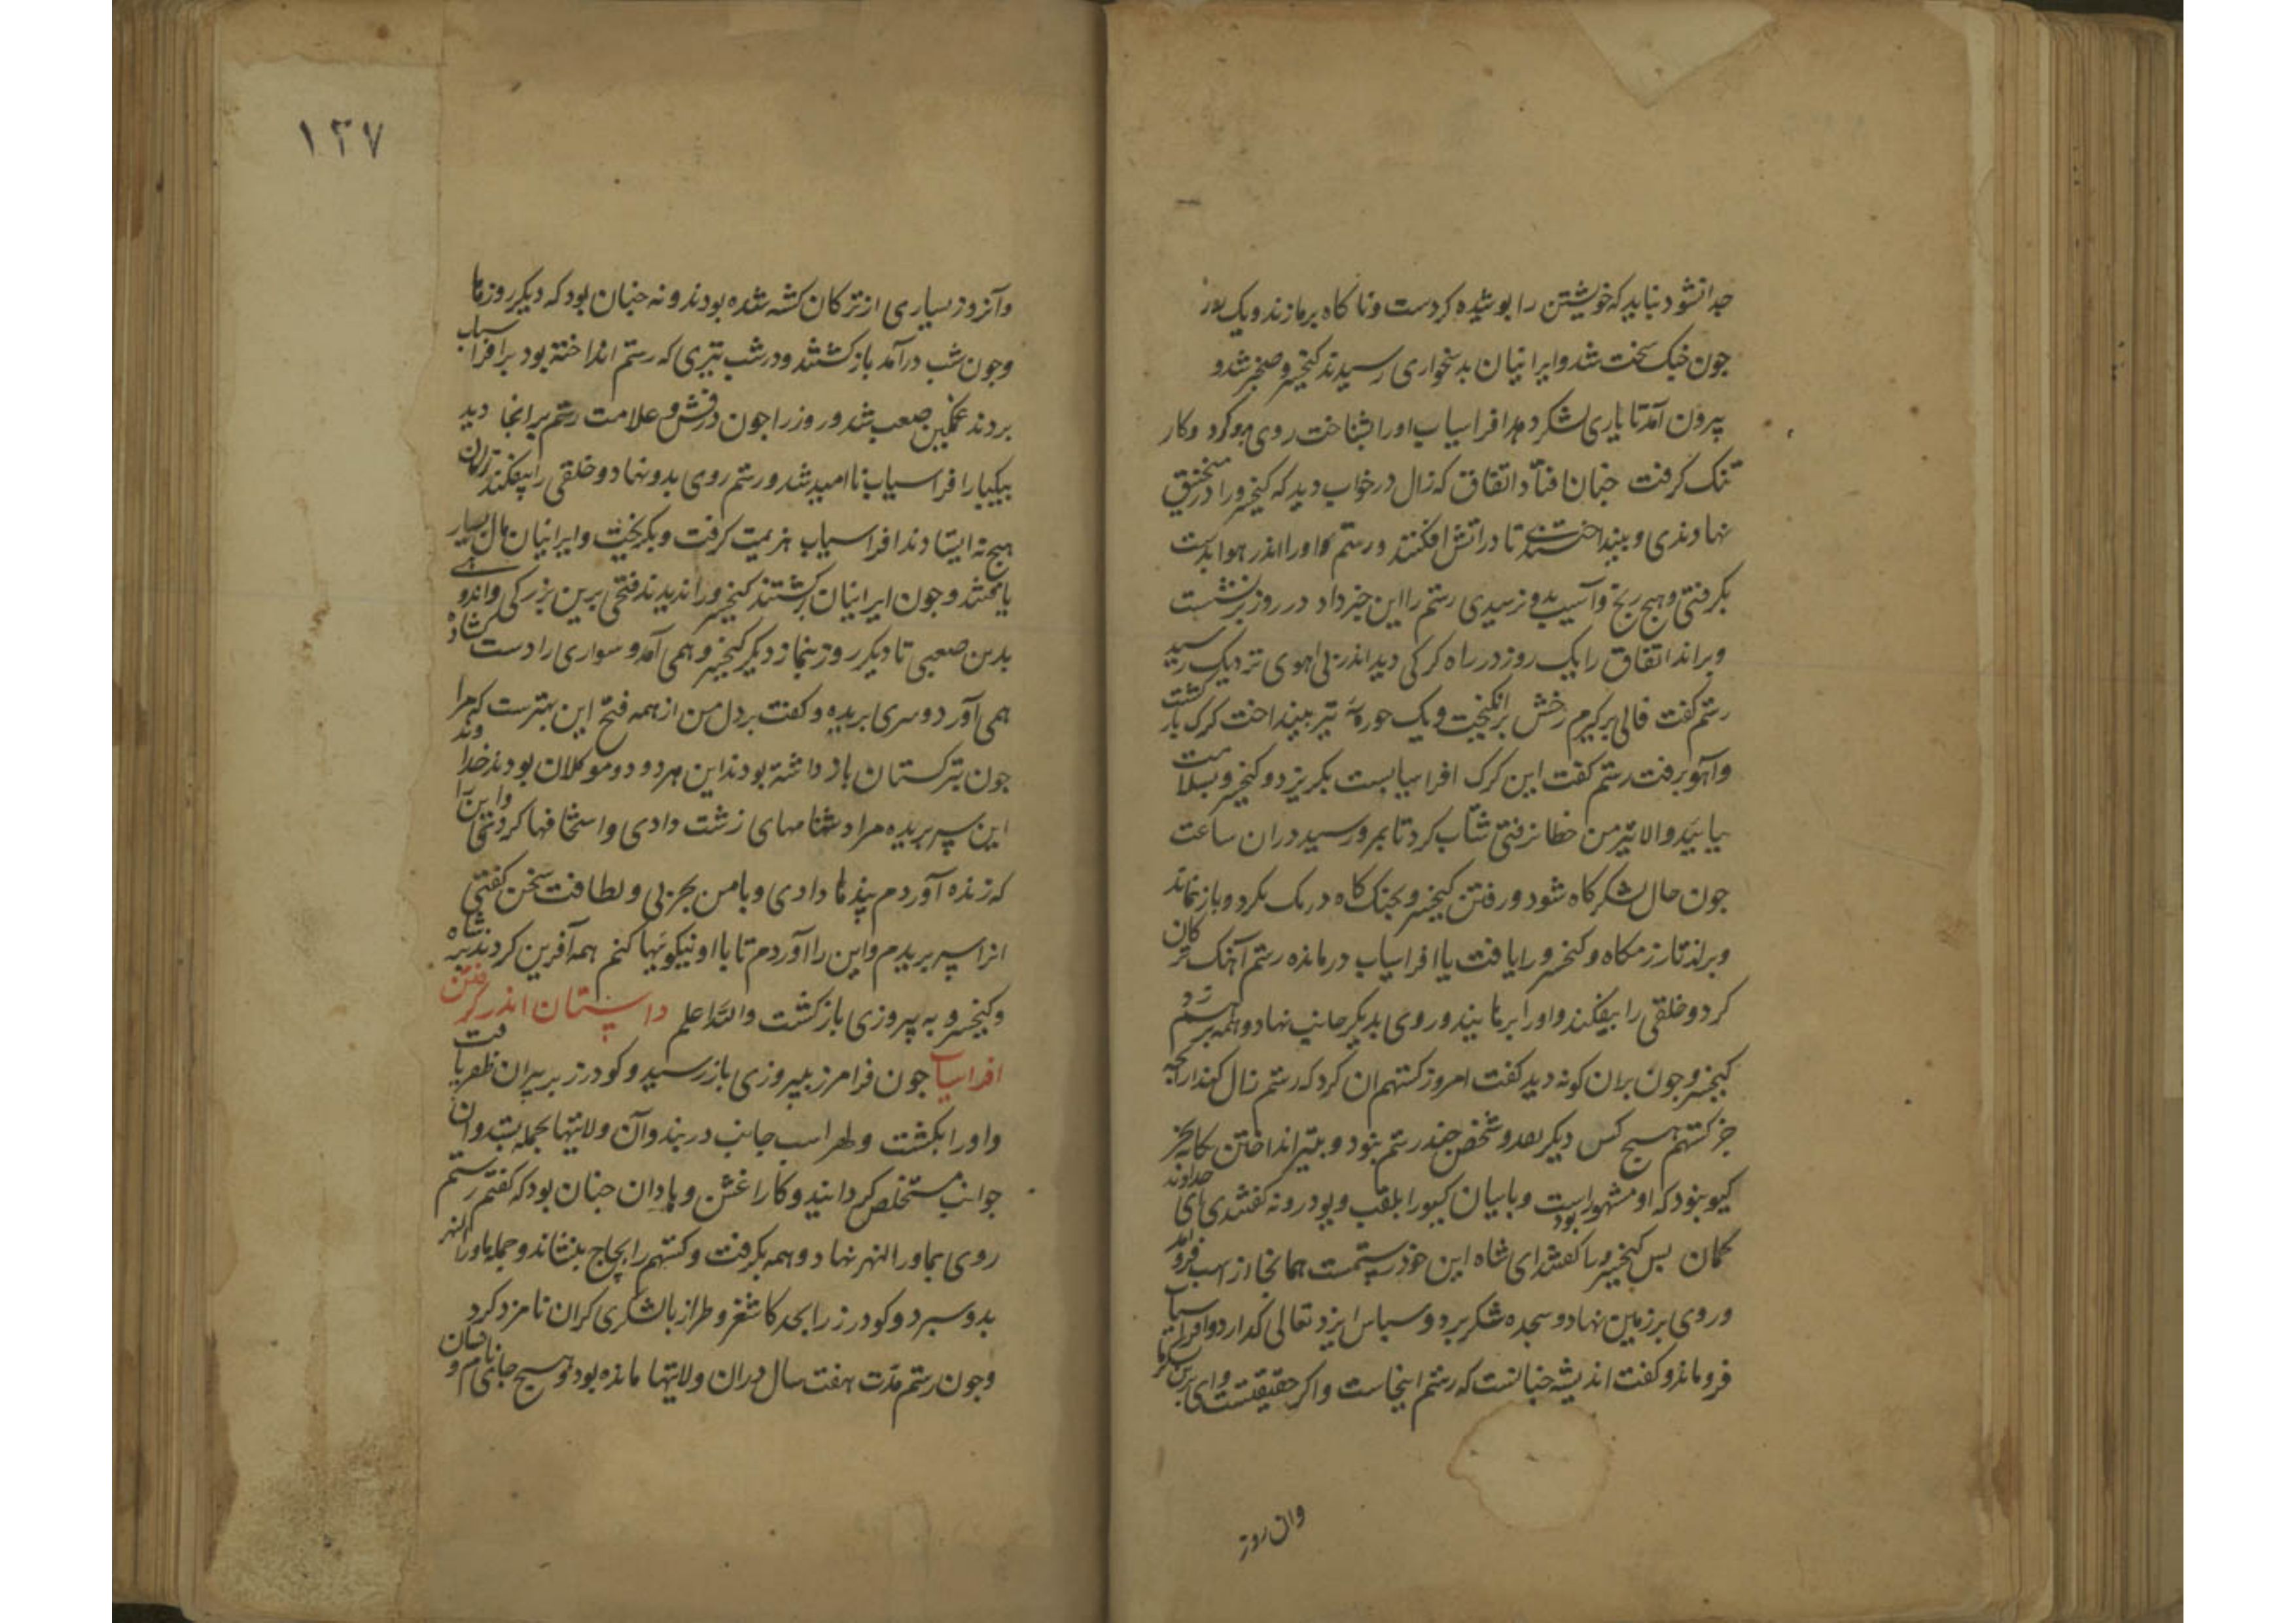 جدا نشود نباید که خویشتن را بوشیده کردست و ناکاه برما زند و یک
جون جنک سخت شد و ایرانیان بدشخواری رسیدند کیخسرو ضجر شد و
بیرون آمد تا یاری لشکر دهد افراسیاب اورا بشناخت روی بدو کرد و کار
تنک کرفت جنان افتاد اتفاق که زال در خواب دید که کیخسرو را در منجنیق
نهادندی و بینداختندی تا در آتش افکنند و رستم اورا اندر هوا بدست
بکرفتی و هیج رنج و آسیب بدو نرسیدی رستم را این خبر داد در روز برنشست
و براند اتفاق را یک روز در راه کرکی دید اندر بی آهوی نزدیک رسید
رستم کفت فالی برکیرم رخش برانکیخت و یک جوبه تیر بینداخت کرک بازکشت
و آهو برفت رستم کفت این کرک افراسیابست بکریزد و کیخسرو بسلامت
بیاید و الا تیر من خطا نرفتی شتاب کرد تا بمرو رسید دران ساعت
جون حال لشکرکاه شنود و رفتن کیخسرو بجنک کاه درنک نکرد و باز نماند
و براند تا رزمکاه و کیخسرو را یافت با افراسیاب درمانده رستم آهنک ترکان
کرد و خلقی را بیفکند و اورا برهانید و روی بدیکر جانب نهاد و همه برهم زد
کیخسرو جون بران کونه دید کفت امروز کستهم ان کرد که رستم زال کند از بهر آنکه
جز کستهم هیج کس دیکر بقد و شخص جند رستم نبود و بتیر انداختن بجز
کیو نبود که او مشهور بود است و بابیان کیو را بلقب و بود رونه کفتندی ای خداوند
کمان بس کیخسرو را کفتند ای شاه این خود رستمست همانجا از اسب فرو آمد
و روی بر زمین نهاد و سجده شکر برد و سباس ایزد تعالی کذارد و افراسیاب
فرو ماند و کفت اندیشه جنانست که رستم اینجاست و اکر حقیقتست وای برین لشکر ما
وان روز
۱۳۷
وآنروز بسیاری از ترکان کشته شده بودند و نه جنان بود که دیکر روزها
و جون شب درآمد بازکشتند و در شب تیری که رستم انداخته بود بر افراسیاب
بردند غمکین صعب شد و روز را جون درفش و علامت رستم برانجا دید
بیکبار افراسیاب ناامید شد و رستم روی بدو نهاد و خلقی را بیفکند ترکان
هیج نه ایستادند افراسیاب هزیمت کرفت و بکریخت و ایرانیان مال بسیار
یافتند و جون ایرانیان بازکشتند کیخسرو را ندیدند فتحی برین بزرکی و اندوهی
بدین صعبی تا دیکر روز بنماز دیکر کیخسرو همی آمد و سواری را دست کشاده
همی آورد و سری بریده و کفت بر دل من از همه فتح این بهترست که مرا
جون بترکستان باز داشته بودند این هر دو موکلان بودند خداوند
این سر بریده مرا دشنامهای زشت دادی و استخفافها کردی و این را
که زنده آوردم بندها دادی و با من بجربی و لطافت سخن کفتی
انرا سر بریدم و این را آوردم تا با او نیکوییها کنم همه آفرین کردند بر شاه
و کیخسرو به بیروزی بازکشت والله اعلم داستان اندر کرفتن
افراسیاب جون فرامرز ببیروزی باز رسید و کودرز بر بیران ظفر یافت
و اورا بکشت و لهراسب جانب دربند وآن ولایتها بجمله بستد و ان
جوانب مستخلص کردانید و کار اغش وهادان جنان بود که کفتم رستم
روی بماورا النهر نهاد و همه بکرفت و کستهم را بجاج بنشاند و جمله ماورا النهر
بدو سبرد و کودرز را بحد کاشغر و طراز با لشکری کران نامزد کرد
و جون رستم مدت هفت سال دران ولایتها مانده بود و هیج جای نام و نشان